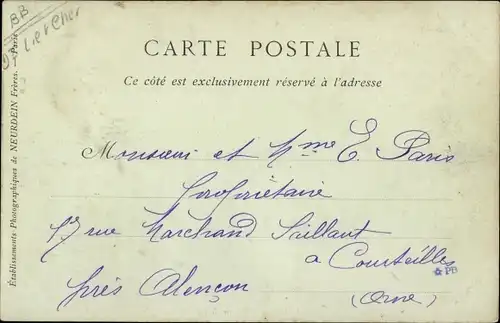 BB
Loir et Cher
CARTE POSTALE
Ce côté est exclusivement réservé à l'adresse
Monsieur et Mme E. Paris
Propriétaire
17 rue Marchand Saillant
à Courteilles
près Alençon
(Orne)
PB
Établissements Photographiques de NEURDEIN Frères. — Paris